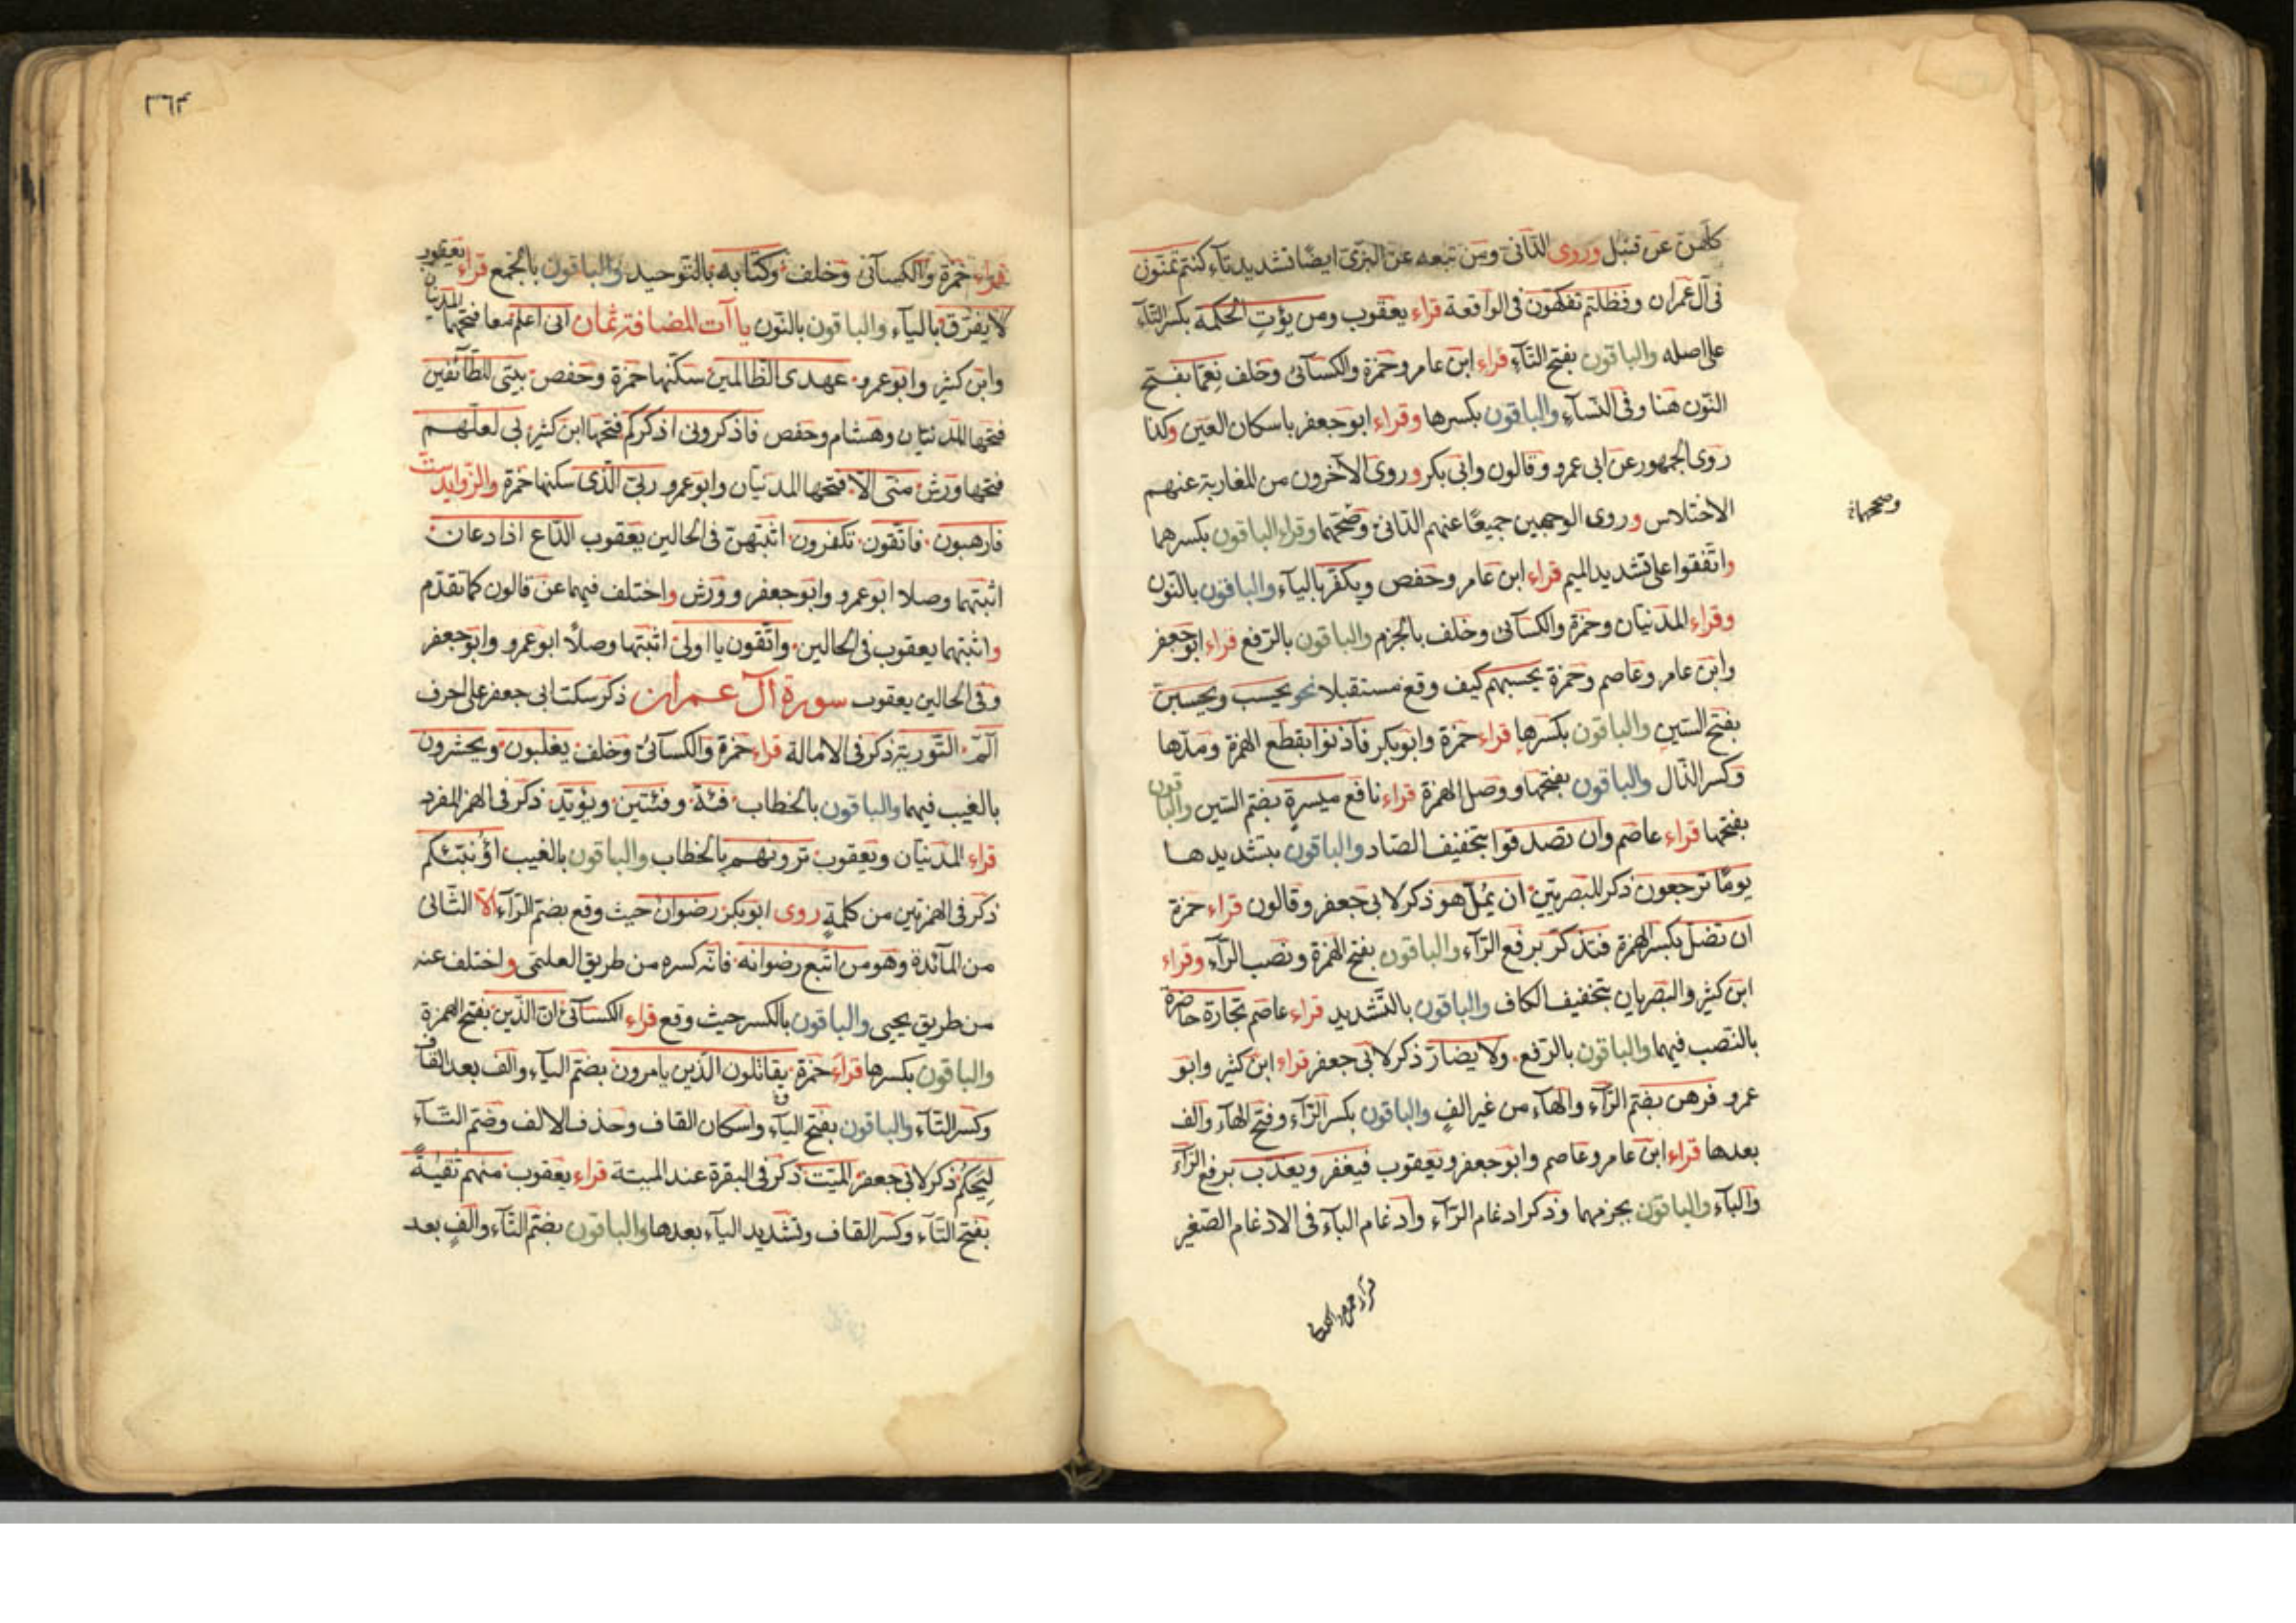 كلهن عن قنبل وروى الدانى ومن تبعه عن البزى ايضا تشديد تاء كنتم تمنون
فى آل عمران وفظلتم تفكهون فى الواقعة قراء يعقوب ومن يؤت الحكمة بكسر التاء
على اصله والباقون بفتح التاء قراء ابن عامر وحمزة والكسائى وخلف نعما بفتح
النون هنا وفى النساء والباقون بكسرها وقراء ابو جعفر باسكان العين وكذا
روى الجمهور عن ابى عمرو وقالون وابى بكر وروى الآخرون من المغاربة عنهم
الاختلاس وروى الوجهين جميعا عنهم الدانى وصححهما وقراء الباقون بكسرهما
واتفقوا على تشديد الميم قراء ابن عامر وحفص ويكفر بالياء والباقون بالنون
وقراء المدنيان وحمزة والكسائى وخلف بالجزم والباقون بالرفع قراء ابو جعفر
وابن عامر وعاصم وحمزة يحسبهم كيف وقع مستقبلا نحو يحسب ويحسبن
بفتح السين والباقون بكسرها قراء حمزة وابو بكر فآذنوا بقطع الهمزة ومدها
وكسر الذال والباقون بفتحها ووصل الهمزة قراء نافع ميسرة بضم السين والباقون
بفتحها قراء عاصم وان تصدقوا بتخفيف الصاد والباقون بتشديدها
يوما ترجعون ذكر للبصريين ان يمل هو ذكر لابى جعفر وقالون قراء حمزة
ان تضل بكسر الهمزة فتذكر برفع الراء والباقون بفتح الهمزة ونصب الراء وقراء
ابن كثير والبصريان بتخفيف الكاف والباقون بالتشديد قراء عاصم تجارة حاضرة
بالنصب فيهما والباقون بالرفع ولا يضار ذكر لابى جعفر قراء ابن كثير وابو
عمرو فرهن بضم الراء والهاء من غير الف والباقون بكسر الراء وفتح الهاء والف
بعدها قراء ابن عامر وعاصم وابو جعفر ويعقوب فيغفر ويعذب برفع الراء
والباء والباقون بجزمهما وذكر ادغام الراء وادغام الباء فى الادغام الصغير
قراء حمزة والكسا
٣٦٣
قراء حمزة والكسائى وخلف وكتابه بالتوحيد والباقون بالجمع قراء يعقوب
لا يفرق بالياء والباقون بالنون ياآت المضافة ثمان انى اعلم معا فتحهما المدنيان
وابن كثير وابو عمرو عهدى الظالمين سكنها حمزة وحفص بيتى للطائفين
فتحها المدنيان وهشام وحفص فاذكرونى اذكركم فتحها ابن كثير بى لعلهم
فتحها ورش منى الا فتحها المدنيان وابو عمرو ربى الذى سكنها حمزة والزوايد ست
فارهبون فاتقون تكفرون اثبتهن فى الحالين يعقوب الداع اذا دعان
اثبتهما وصلا ابو عمرو وابو جعفر وورش واختلف فيهما عن قالون كما تقدم
واثبتهما يعقوب فى الحالين واتقون يا اولى اثبتها وصلا ابو عمرو وابو جعفر
وفى الحالين يعقوب سورة آل عمران ذكر سكت ابى جعفر على حرف
الم التورية ذكر فى الامالة قراء حمزة والكسائى وخلف يغلبون ويحشرون
بالغيب فيهما والباقون بالخطاب فئة وفئتين ويؤيد ذكر فى الهمز المفرد
قراء المدنيان ويعقوب ترونهم بالخطاب والباقون بالغيب اؤنبئكم
ذكر فى الهمزتين من كلمة روى ابو بكر رضوان حيث وقع بضم الراء الا الثانى
من المائدة وهو من اتبع رضوانه فانه كسره من طريق العليمى واختلف عنه
من طريق يحيى والباقون بالكسر حيث وقع قراء الكسائى ان الدين بفتح الهمزة
والباقون بكسرها قراء حمزة يقاتلون الذين يامرون بضم الياء والف بعد القاف
وكسر التاء والباقون بفتح الياء واسكان القاف وحذف الالف وضم التاء
ليحكم ذكر لابى جعفر الميت ذكر فى البقرة عند الميتة قراء يعقوب منهم تقية
بفتح التاء وكسر القاف وتشديد الياء بعدها والباقون بضم التاء والف بعد